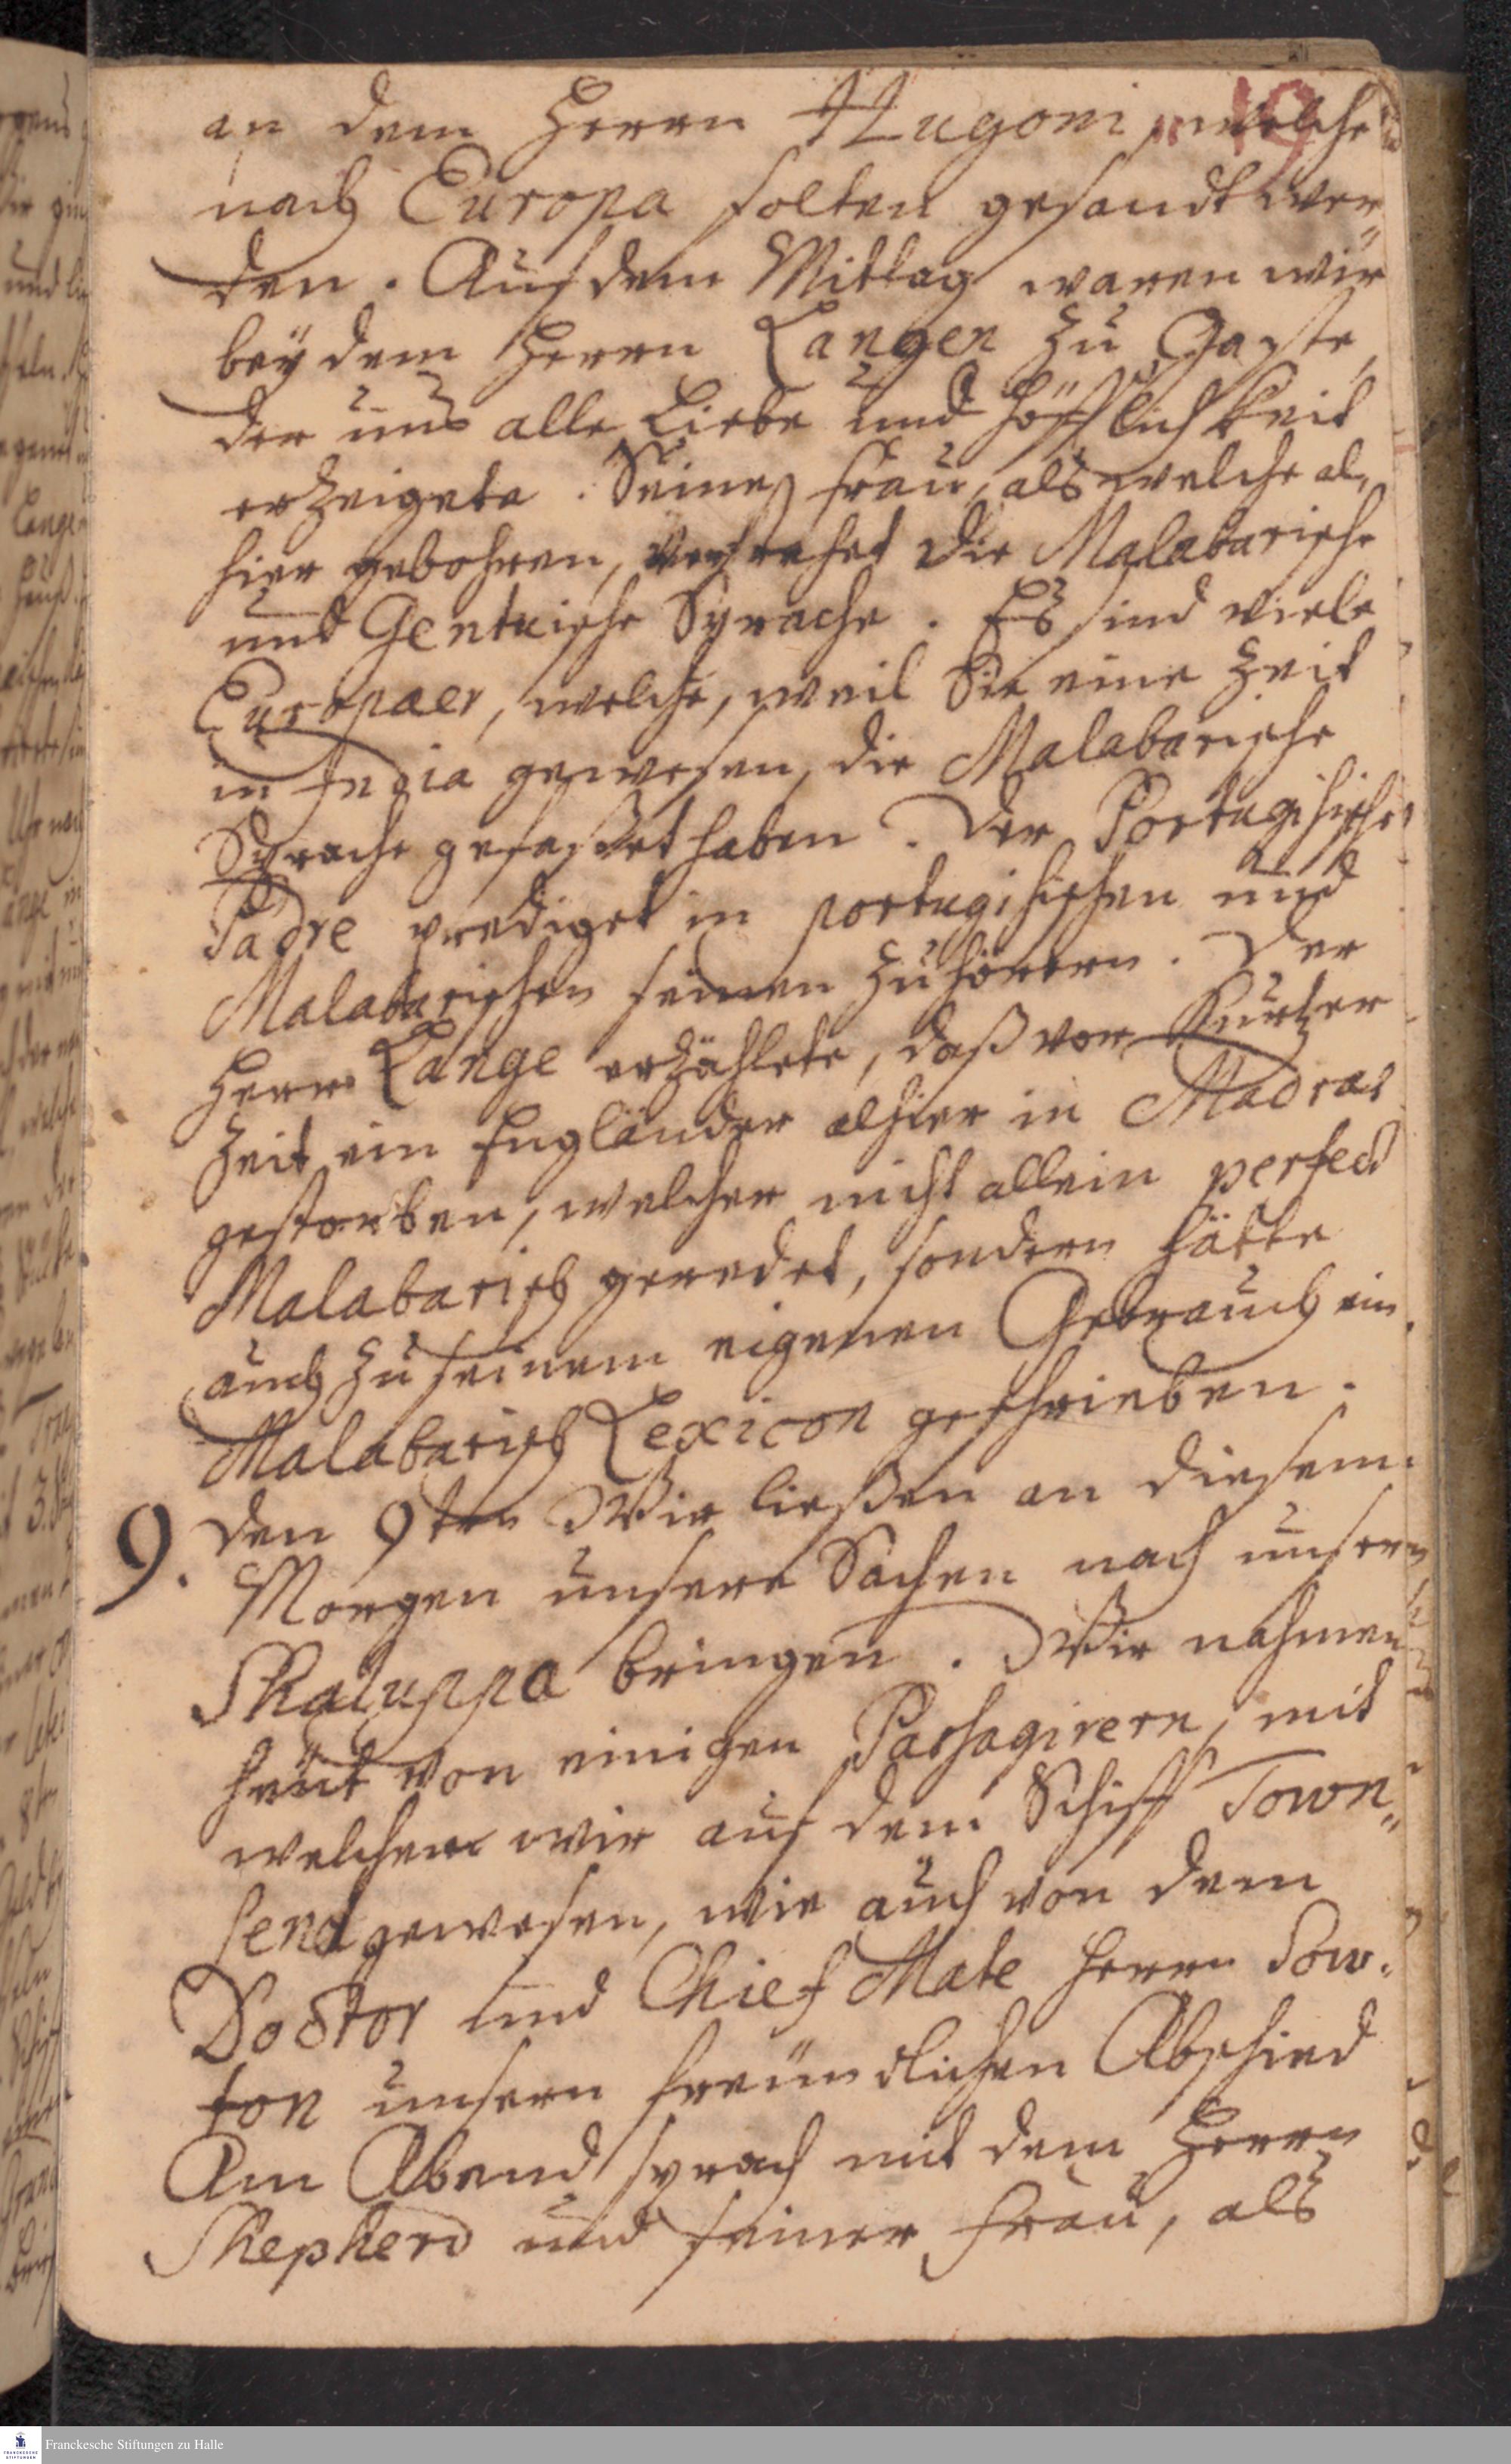 19
an dem Herrn Hugoni, welche
nach Europa solten gesandt wer„
den. Auf dem Mittag waren wir
bey dem Herrn Langen zu Gaste,
der uns alle Liebe und Höfflichkeit
erzeigete. Seine Frau, als welche al„
hier gebohren, verstehet die Malabarische
und Gentuische Sprache. Es sind viele
Europaer, welche, weil Sie eine Zeit
in India gewesen, die Malabarische
Sprache gefasset haben. Der Portugisische
Padre prediget in portugisischen und
Malabarischen seinen Zuhörern. Der
Herr Lange erzählete, daß vor Kurtzer
Zeit ein Engländer alhier in Madras
gestorben, welcher nicht allein perfect
Malabarisch geredet, sondern hätte
auch zu seinem eigenen Gebrauch ein
Malabarisch Lexicon geschrieben.
9. Den 9ten Wir ließen an diesem
Morgen unsere Sachen nach unsern
Shaluppa bringen. Wir nahmen
heut von einigen Passagirern, mit
welchen wir auf dem Schiff Town„
send gewesen, wie auch von dem
Doctor und Chief Mate Herrn Sow„
ton unsern freundlichen Abschied
Am Abend sprach mit dem Herrn
Shepherd und seiner Frau, als
Franckesche Stiftungen zu Halle